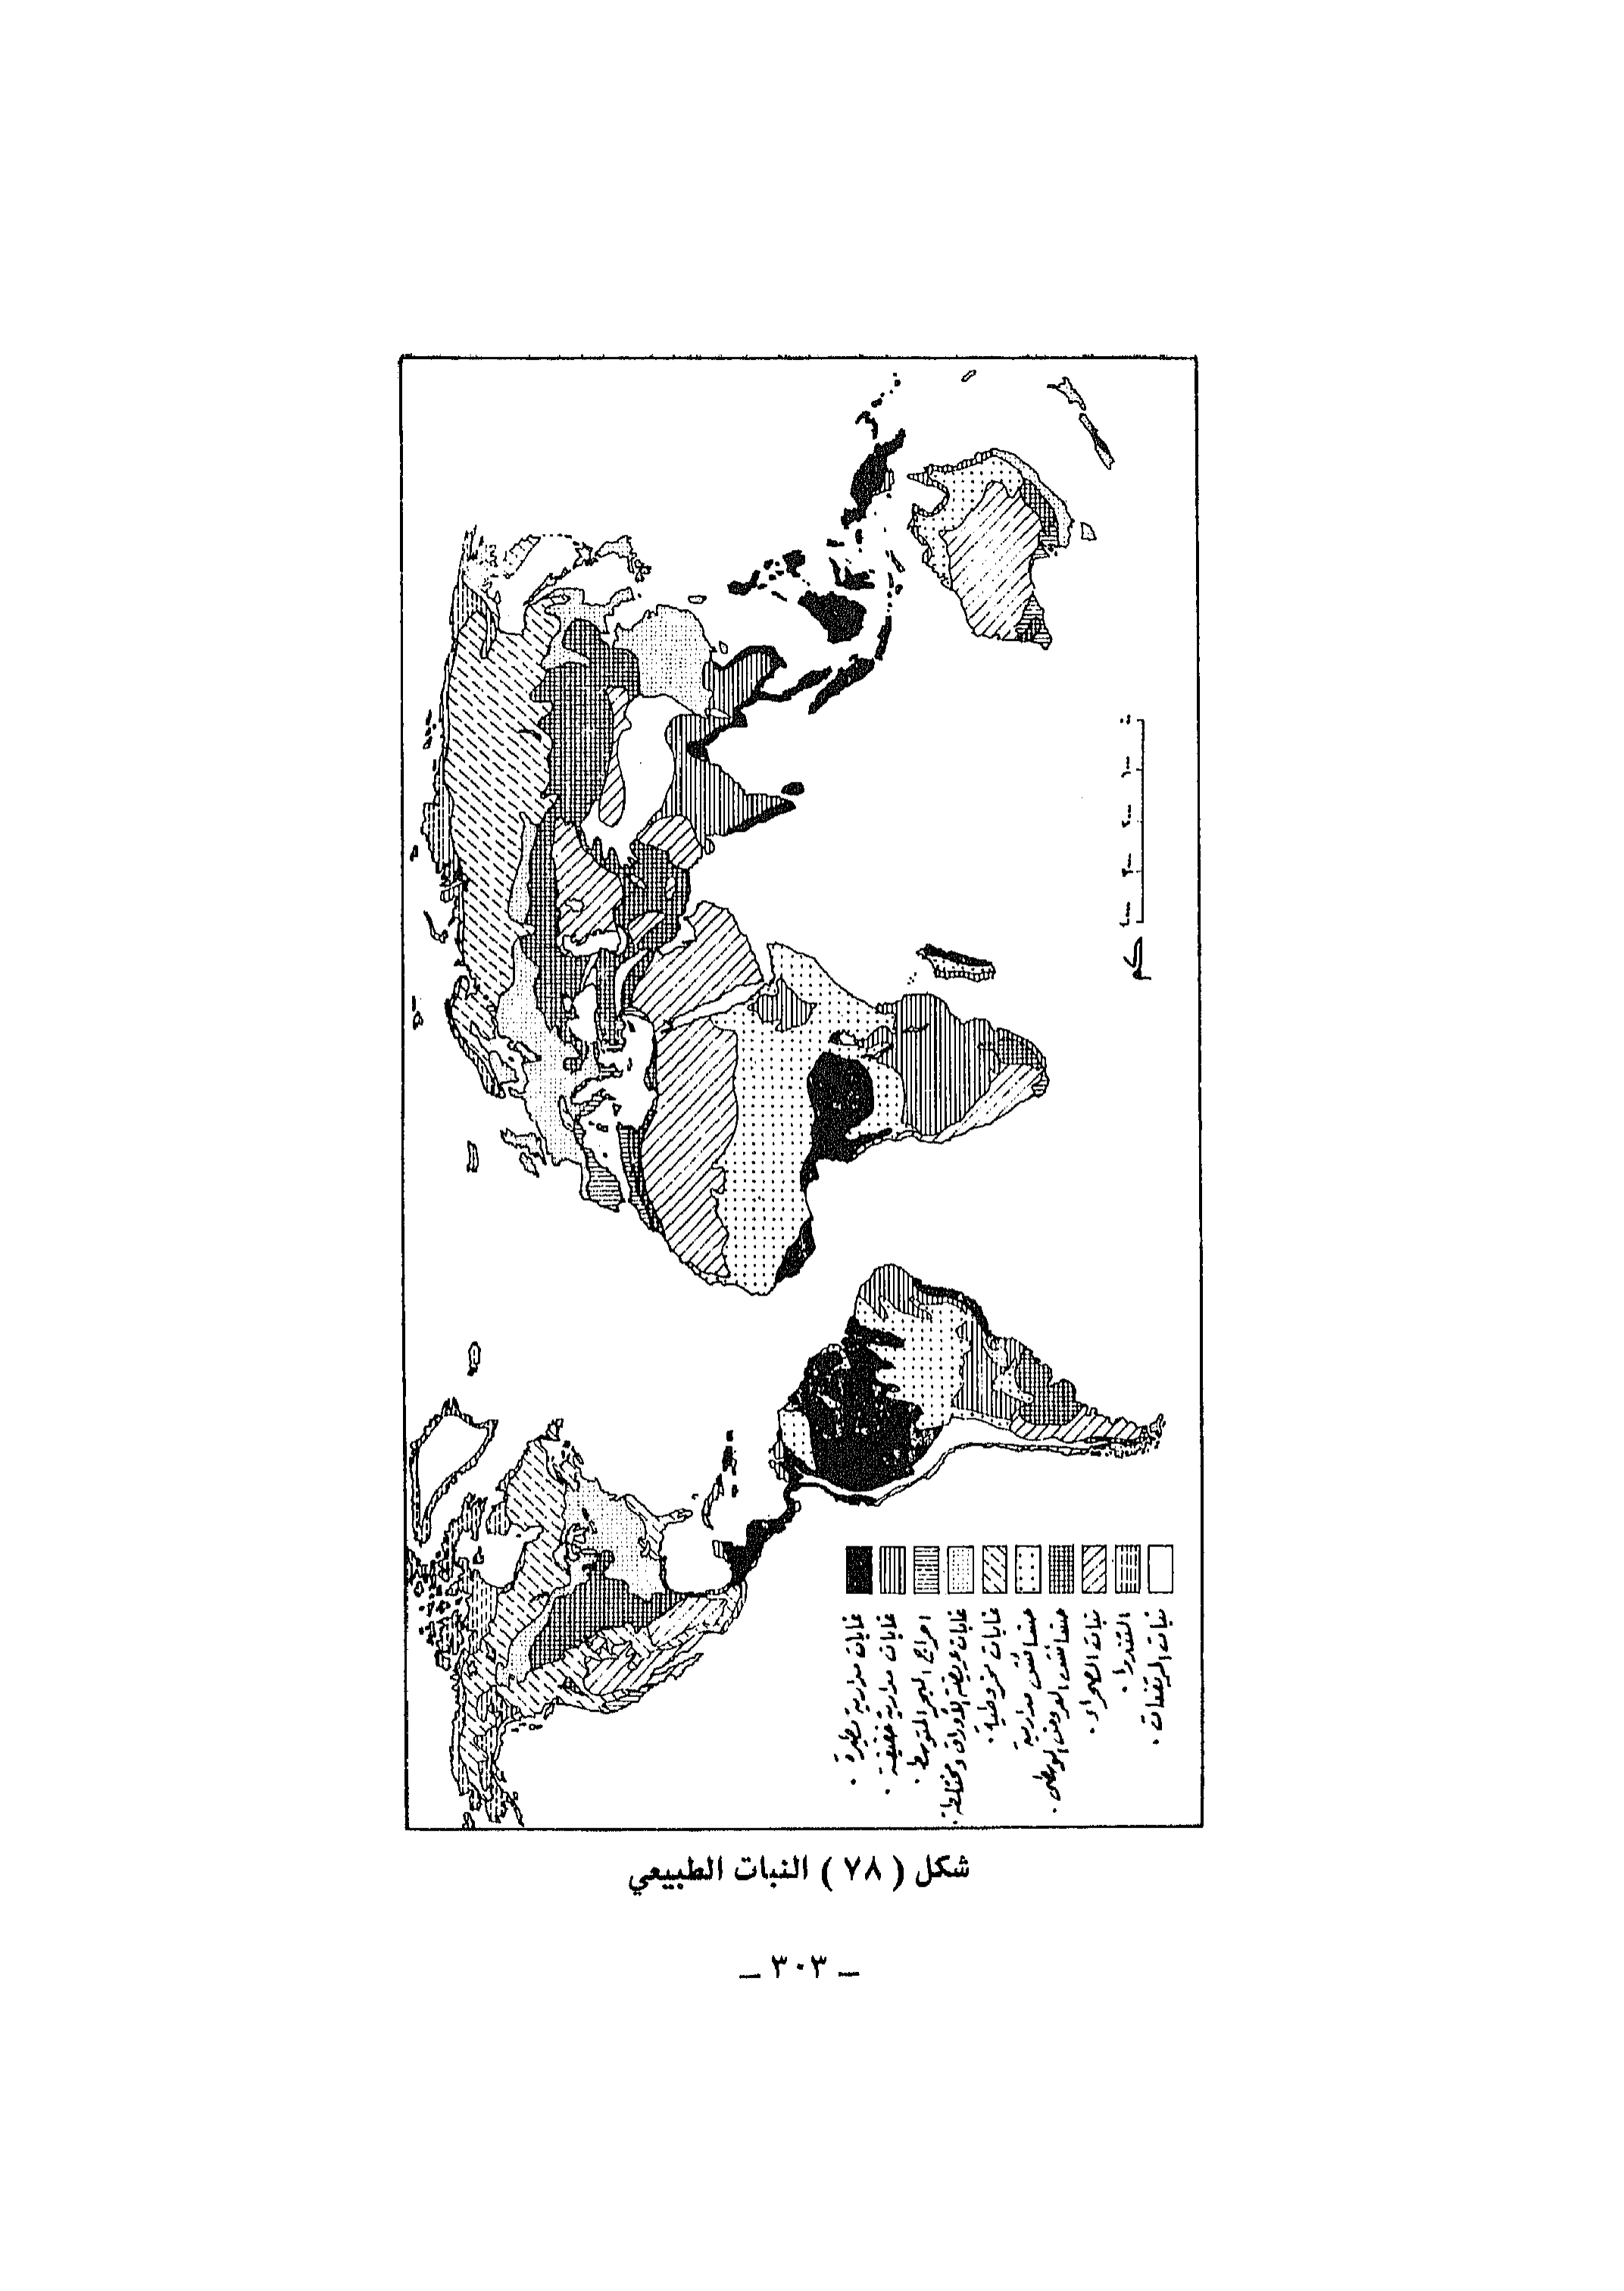 غابات مدارية مطيرة .
غابات مدارية خفيفة .
احراج البحر المتوسط .
غابات عريضة الأوراق ومختلطة .
غابات مخروطية .
حشائش مدارية
حشائش العروض الوسطى .
نبات الصحراء .
التندرا .
نبات المرتفعات .
كم
شكل ( ٧٨ ) النبات الطبيعي
ــ ٣٠٣ ــ